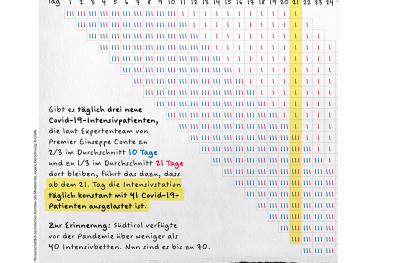 Tag 1 2 3 4 5 6 7 8 9 10 11 12 13 14 15 16 17 18 19 20 21 22 23 24
Gibt es täglich drei neue
Covid-19-Intensivpatienten,
die laut Expertenteam von
Premier Giuseppe Conte zu
2/3 im Durchschnitt 10 Tage
und zu 1/3 im Durchschnitt 21 Tage
dort bleiben, führt das dazu, dass
ab dem 21. Tag die Intensivstation
täglich konstant mit 41 Covid-19-
Patienten ausgelastet ist.
Zur Erinnerung: Südtirol verfügte
vor der Pandemie über weniger als
40 Intensivbetten. Nun sind es bis zu 70.